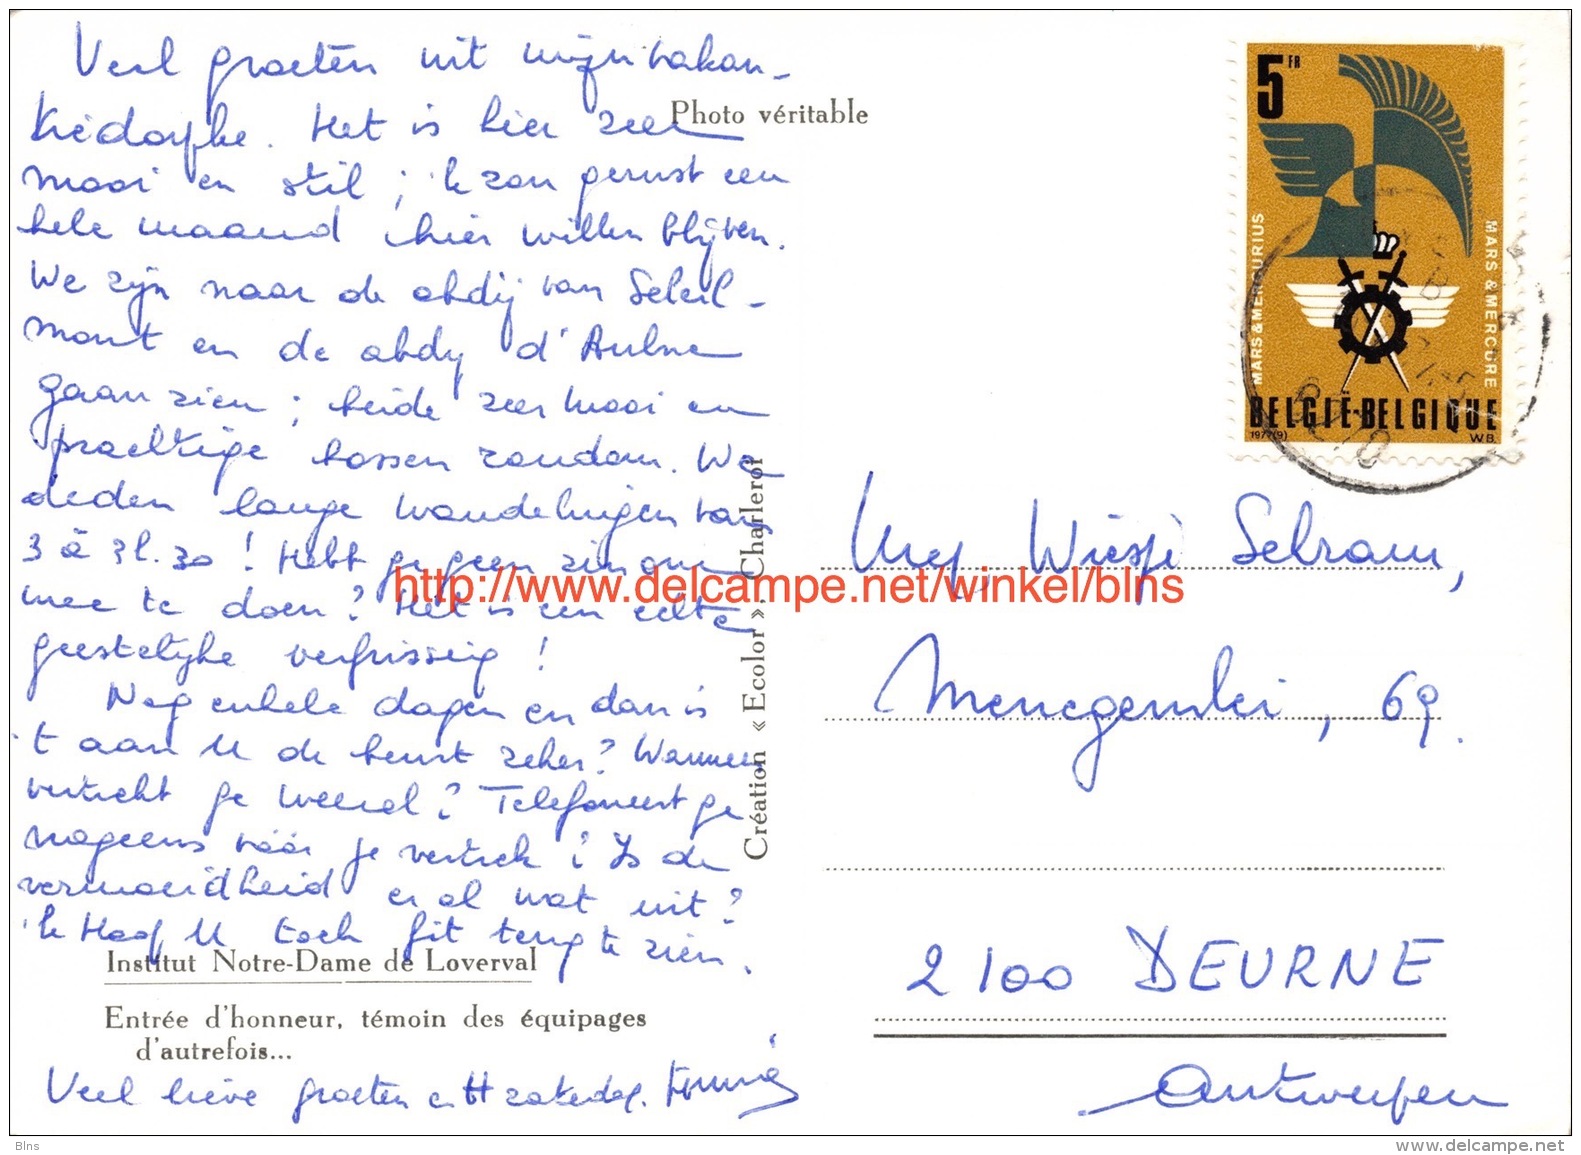 Veel groeten uit mijn vakan-
tiedorpke. Het is hier zeer
mooi en stil ; 'k zou gerust een
hele maand hier willen blijven.
We zijn naar de abdij van Soleil-
mont en de abdij d'Aulne
gaan zien ; beide zeer mooi en
prachtige bossen rondom. We
deden lange wandelingen van
3 à 3h.30 ! Hebt ge geen zin om
mee te doen ? Het is een echte
geestelijke verfrissing !
Nog enkele dagen en dan is
't aan U de beurt zeker ? Wanneer
vertrekt ge weeral ? Telefoneert ge
nog eens vóór je vertrek ? Is de
vermoeidheid er al wat uit ?
'k Hoop U toch fit terug te zien.
Institut Notre-Dame de Loverval
Entrée d'honneur, témoin des équipages
d'autrefois...
Veel lieve groeten en tt zaterdag.
Photo véritable
Création « Ecolor », Charleroi
5 FR
MARS & MERCURIUS
MARS & MERCURE
BELGIË-BELGIQUE
1977(9)
W.B.
Mej. Wiesje Selraam,
Menegemlei, 69.
2100 DEURNE
Antwerpen
http://www.delcampe.net/winkel/blns
Blns
www.delcampe.net